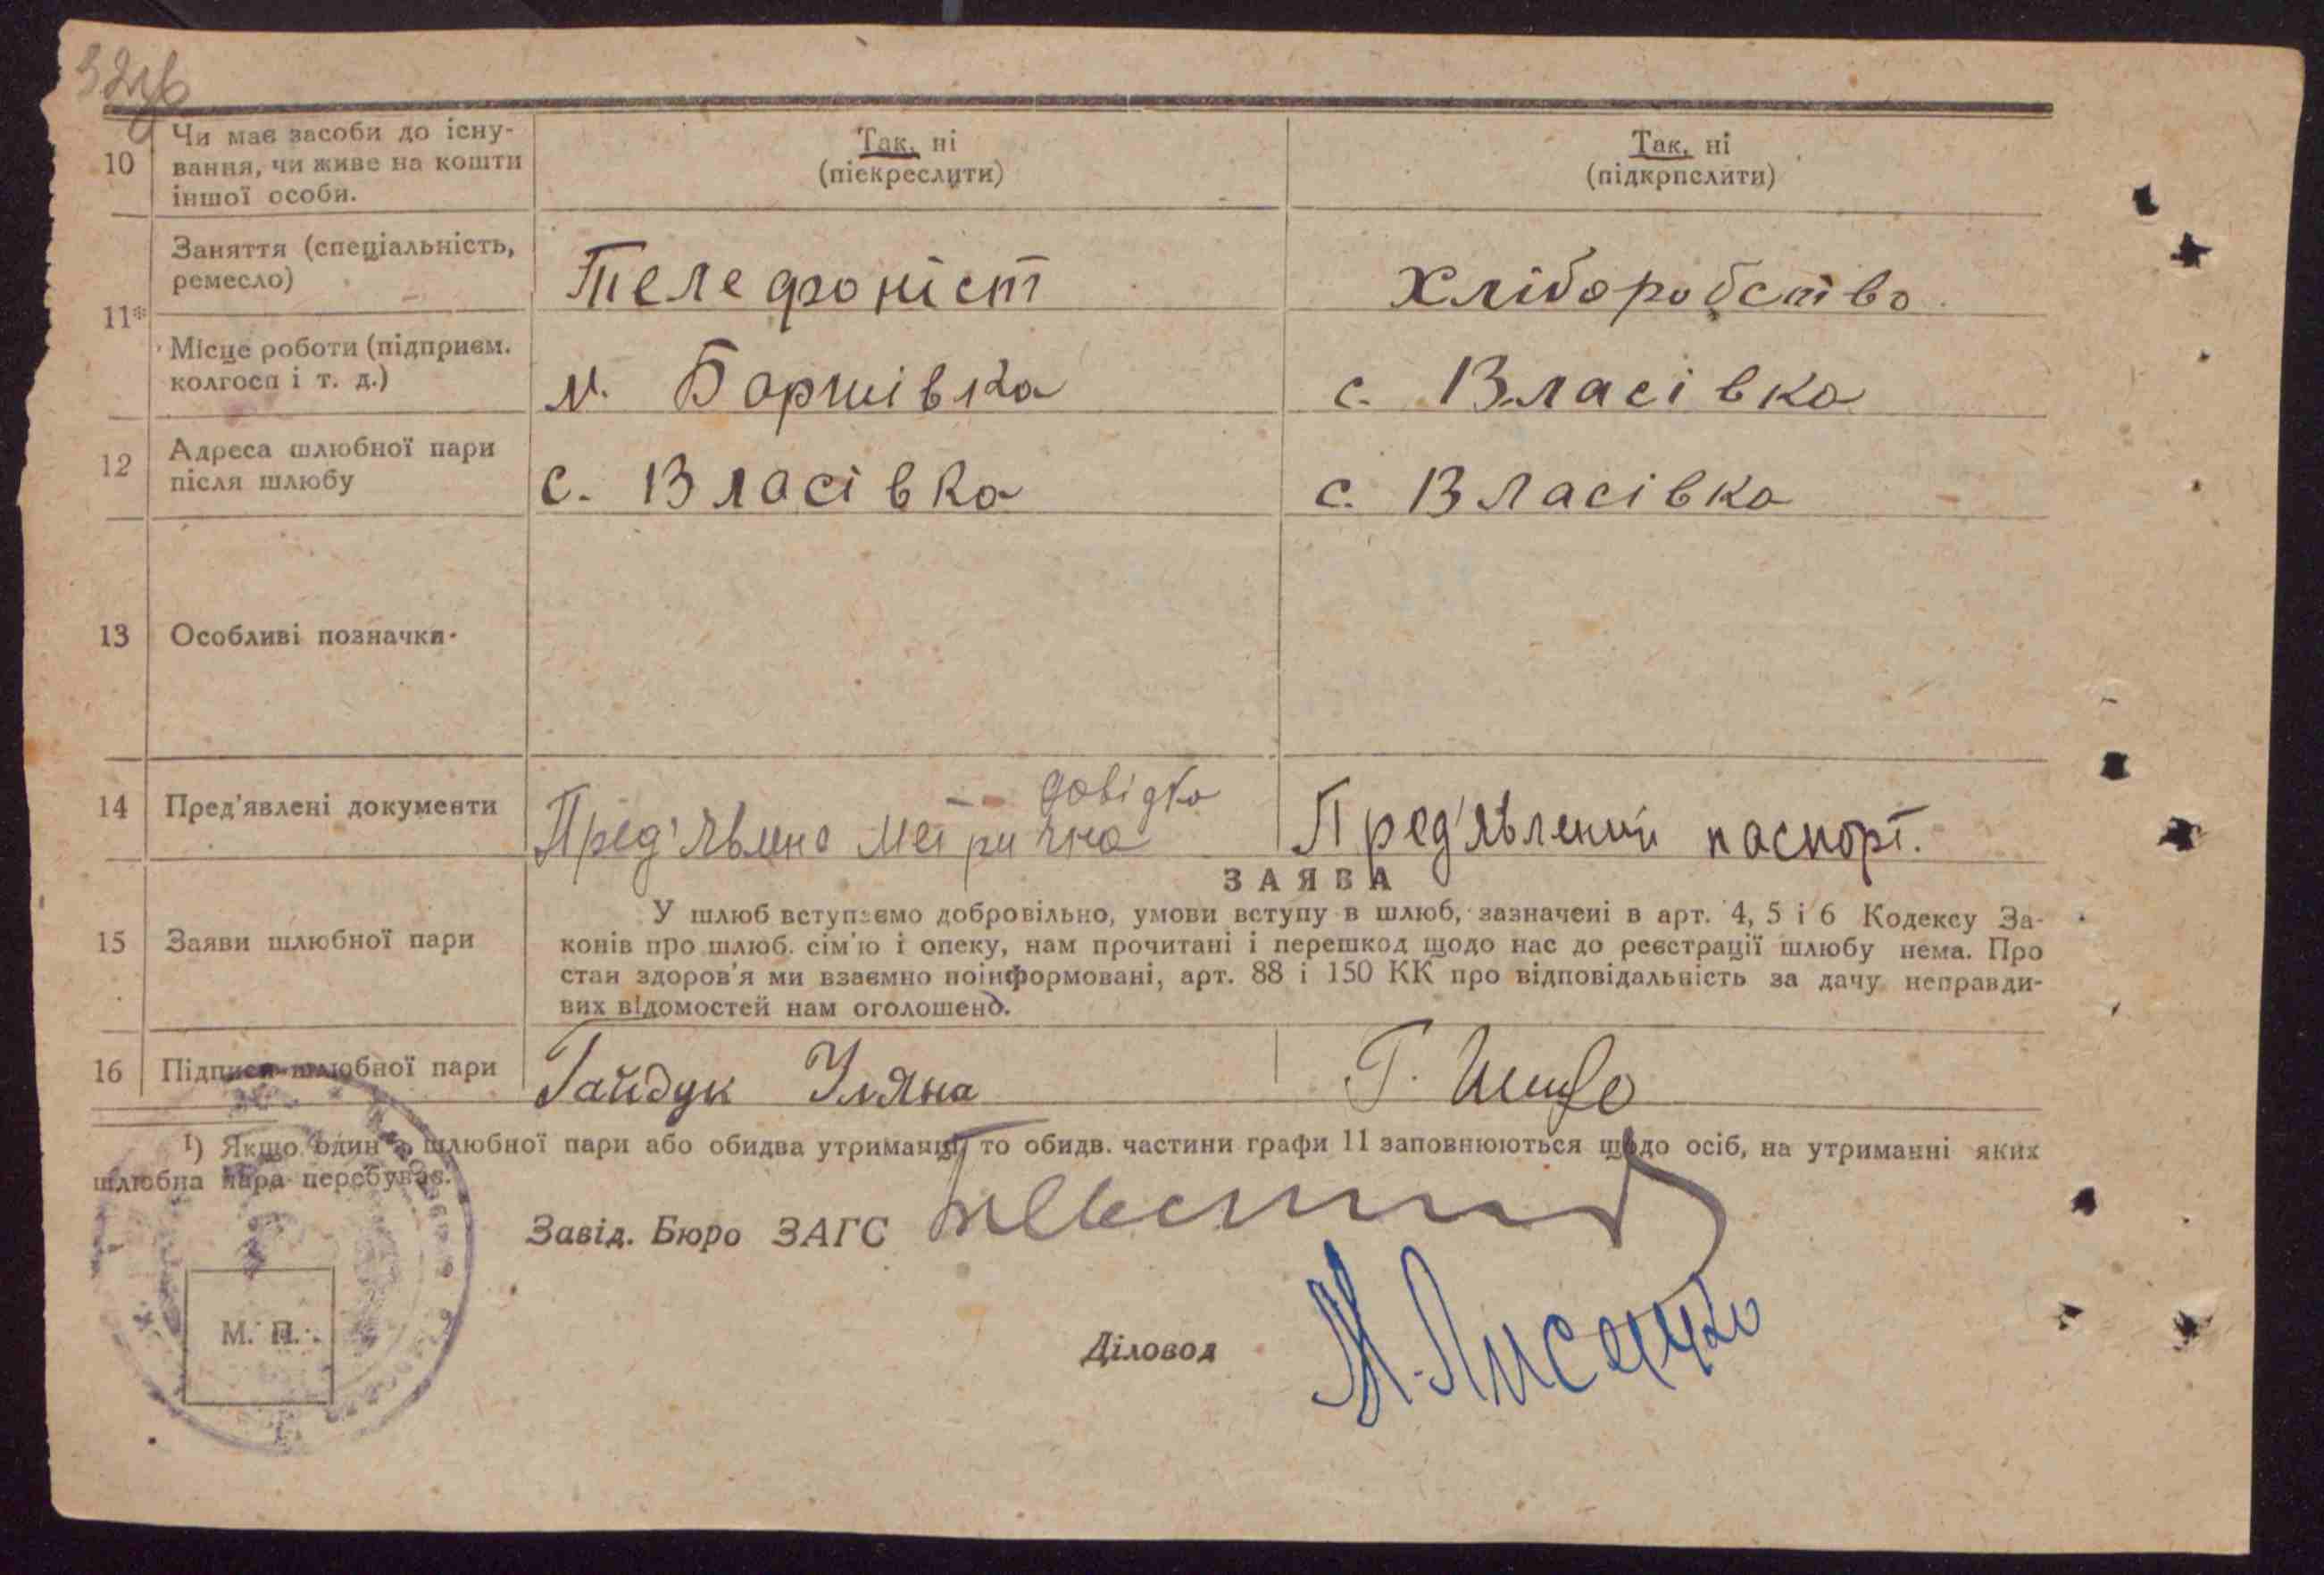 10 Чи має засоби до існу-
вання, чи живе на кошти
іншої особи.
Так, ні
(піекреслити)
Так, ні
(підкрпслити)
11* Заняття (спеціальність,
ремесло)
Телефоніст
Хліборобство
Місце роботи (підприєм.
колгосп і т. д.)
м. Боршівка
с. Власівка
12 Адреса шлюбної пари
після шлюбу
с. Власівка
с. Власівка
13 Особливі позначки
14 Пред'явлені документи
довідка
Пред'явлено метрична
Пред'явлений паспорт.
ЗАЯВА
15 Заяви шлюбної пари
У шлюб вступаємо добровільно, умови вступу в шлюб, зазначені в арт. 4, 5 і 6 Кодексу За-
конів про шлюб. сім'ю і опеку, нам прочитані і перешкод щодо нас до реєстрації шлюбу нема. Про
стан здоров'я ми взаємно поінформовані, арт. 88 і 150 КК про відповідальність за дачу неправди-
вих відомостей нам оголошено.
16 Підписи шлюбної пари
Гайдук Уляна
Г.
1) Якщо один з шлюбної пари або обидва утриманці, то обидв. частини графи 11 заповнюються щодо осіб, на утриманні яких
шлюбна пара перебуває.
Завід. Бюро ЗАГС
М. П.
Діловод М. Лисенко